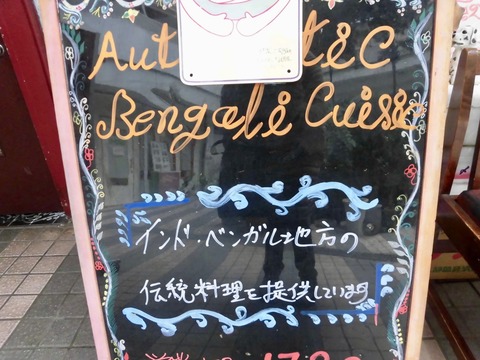 Aut tic
Bengali Cuisi
インド・ベンガル地方の
伝統料理を提供しています